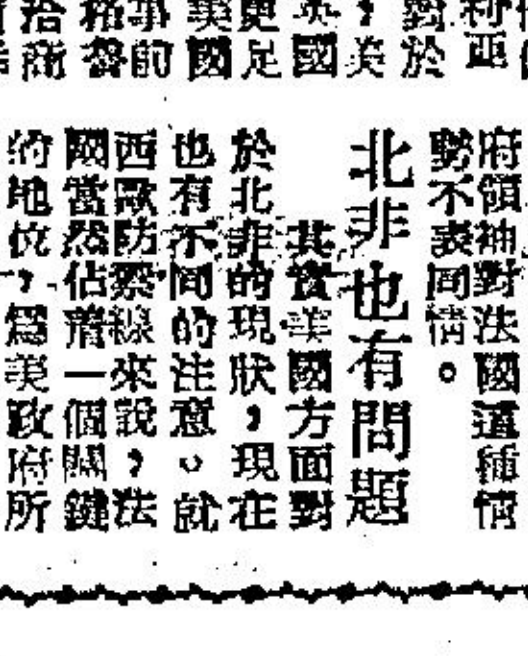 府領袖對法國這種情
勢不表同情。
北非也有問題
其實美國方面對
於北非的現狀，現在
也有不同的注意。就
西歐防禦線來說，法
國當然佔着一個關鍵
的地位，爲美政府所